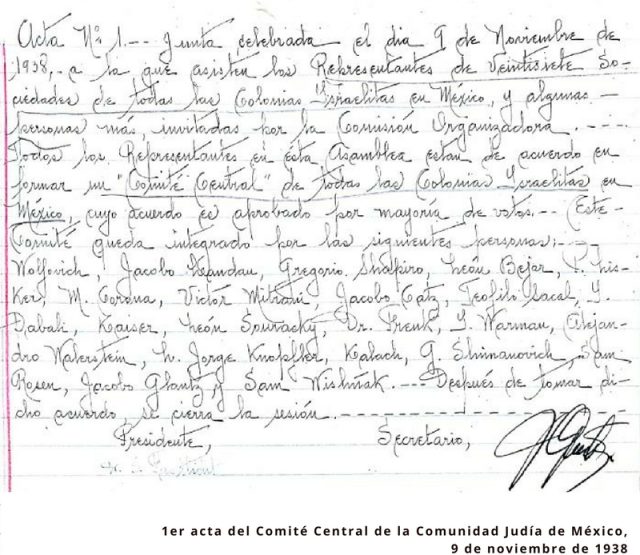 Acta Nº 1.-- Junta celebrada el dia 9 de Noviembre de
1938,- a la que asisten los Representantes de Veintisiete So-
ciedades de todas las Colonias Israelitas en México, y algunas
personas más, invitadas por la Comisión Organizadora. ----
Todos los Representantes en ésta Asamblea están de acuerdo en
formar un "Comité Central" de todas las Colonias Israelitas en
México, cuyo acuerdo es aprobado por mayoría de votos.-- (Este
Comité queda integrado por las siguientes personas:--
Wolfovich, Jacobo Landau, Gregorio Shapiro, León Bejar, P. Lis-
ker, M. Corona, Victor Mitrani, Jacobo Catz, Teofilo Sacal, I.
Dabah, Kaiser, León Souracky, Dr. Frenk, I. Warman, Alejan-
dro Walerstein, Jorge Knopfler, Kalach, G. Shimanovich, Sam
Rosen, Jacobo Glantz y Sam Wishñak. --- Después de tomar di-
cho acuerdo, se cierra la sesión. ----------------
Presidente, Secretario,
1er acta del Comité Central de la Comunidad Judía de México,
9 de noviembre de 1938